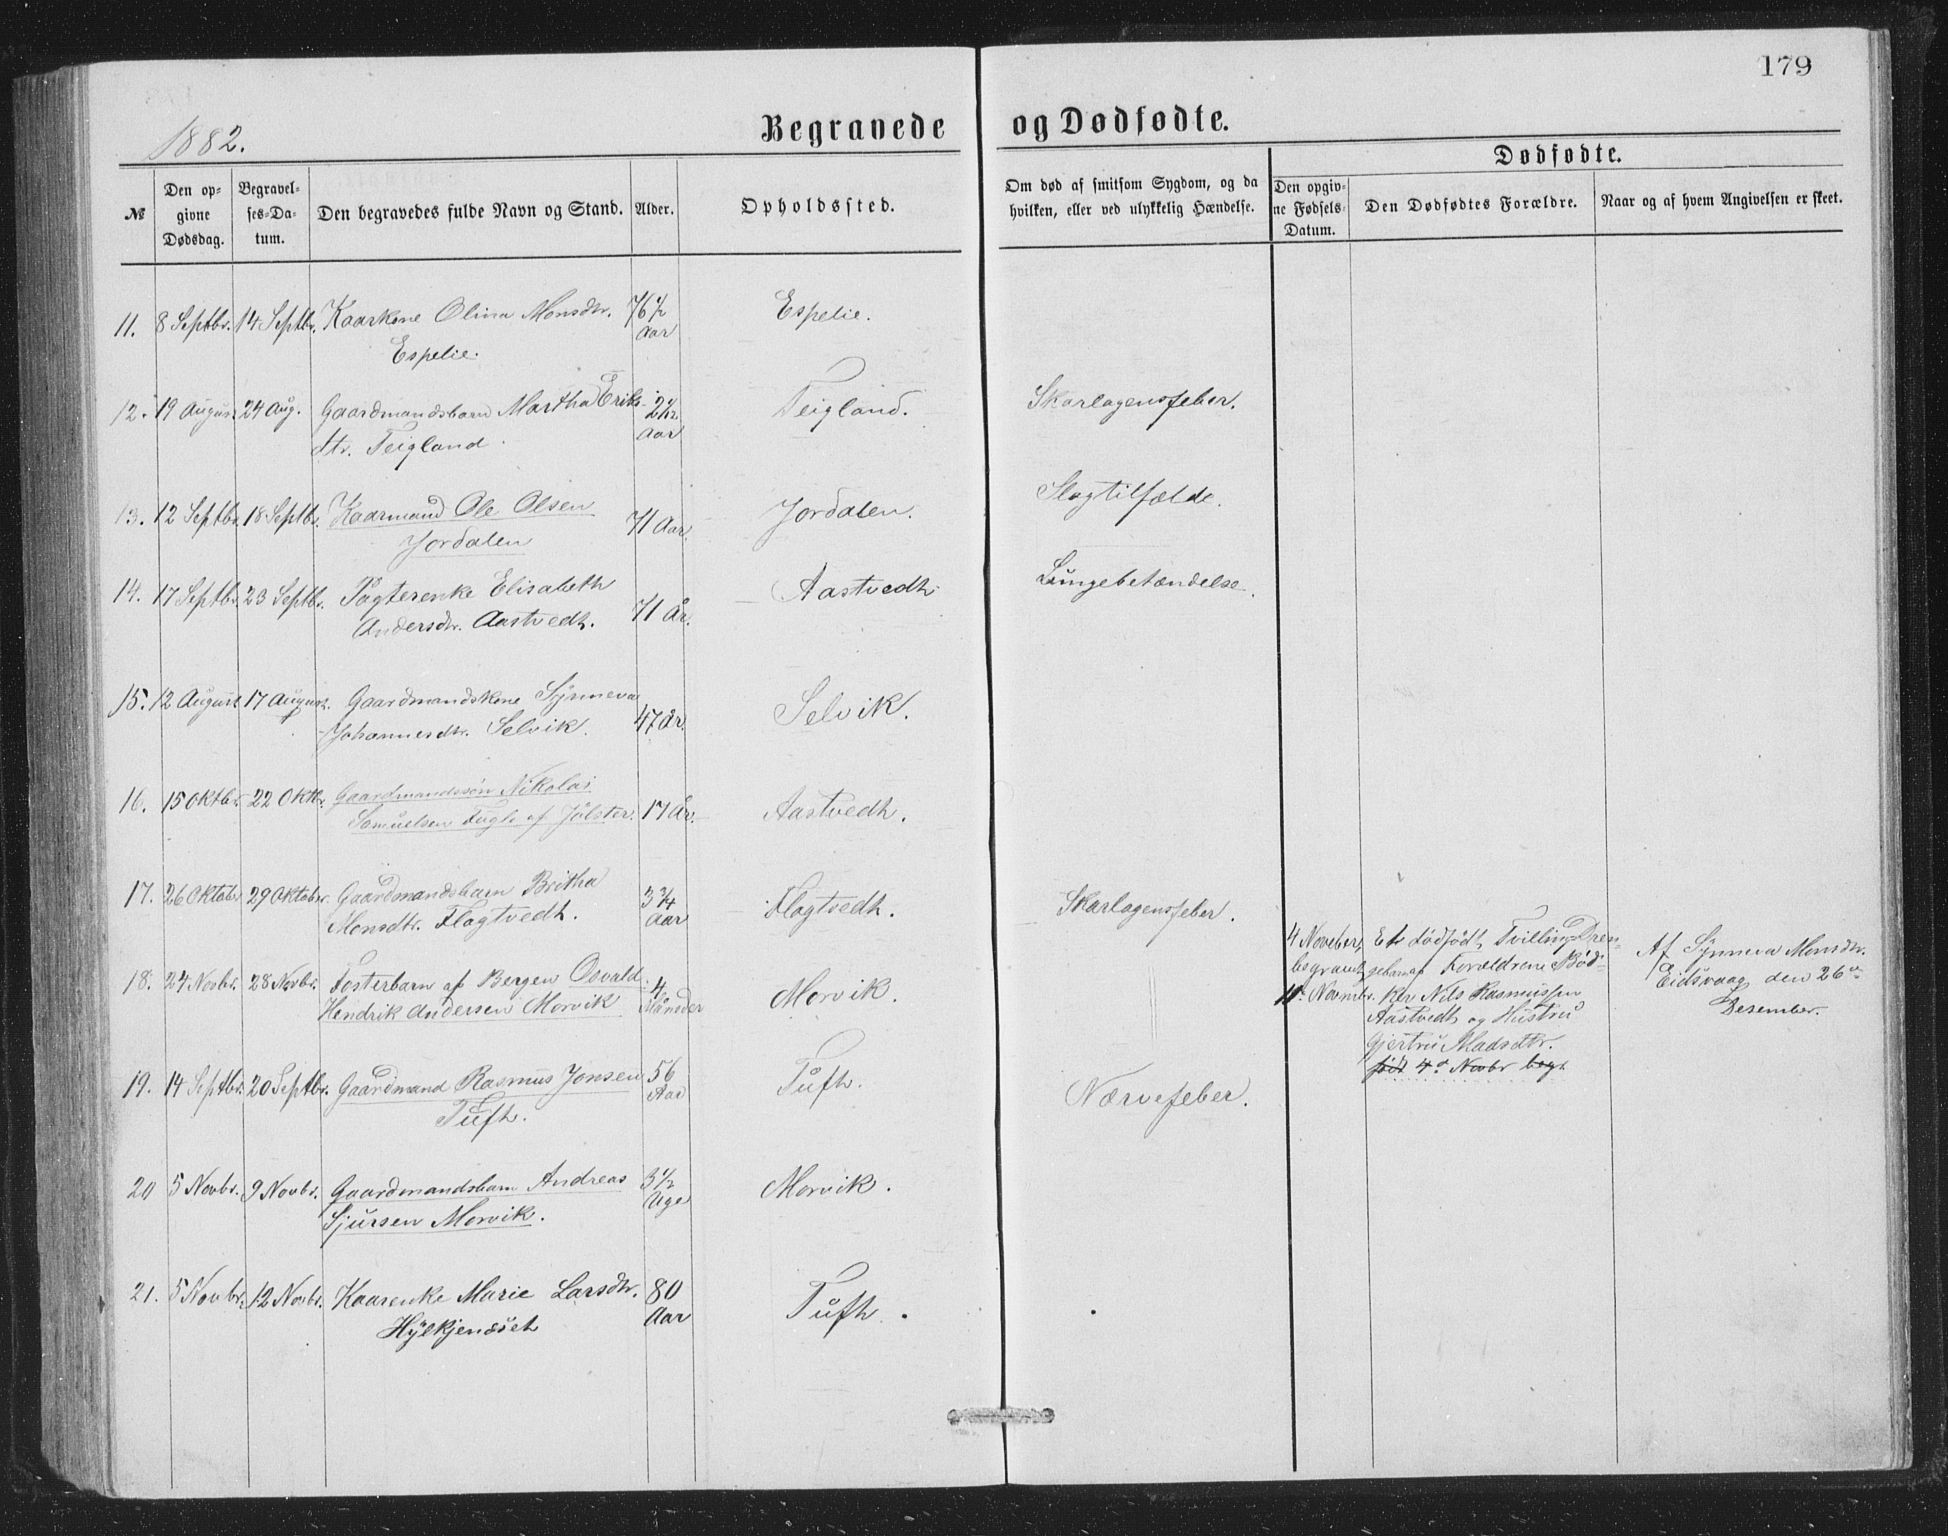 179
1882.
Begravede og Dødfødte.
Dødfødte.
№
Den opgivne Dødsdag.
Begravelses-Datum.
Den begravedes fulde Navn og Stand.
Alder.
Opholdssted.
Om død af smitsom Sygdom, og da
hvilken, eller ved ulykkelig Hændelse.
Den opgivne Fødsels-Datum.
Den Dødfødtes Forældre.
Naar og af hvem Angivelsen er skeet.
11. 8 Septbr. 14 Septbr. Kaarkone Olina Monsdtr. 76 1/2 Espelie.
Espelie. Aar
12. 19 August 24 Aug. Gaardmandsbarn Martha Eriks- 2 1/2 Teigland. Skarlagensfeber.
dtr. Teigland. Aar
13. 12 Septbr. 18 Septbr. Kaarmand Ole Olsen 71 Aar. Jordalen. Slagtilfælde.
Jordalen
14. 17 Septbr. 23 Septbr. Pagterenke Elisabeth Aastvedt Lungebetændelse.
Andersdtr. Aastvedt. 71 År.
15. 12 August 17 August. Gaardmandskone Synneva Selvik.
Johannesdtr. Selvik. 47 år.
16. 15 Oktbr. 22 Oktbr. Gaardmandssøn Nikolai Aastvedt.
Samuelsen Fugle af Jølster. 17 År.
17. 26 Oktobr. 29 Oktobr. Gaardmandsbarn Britha 3 3/4 Flagtvedt. Skarlagensfeber.
Monsdtr. Flagtvedt. Aar
18. 24 Novbr. 28 Novbr. Fosterbarn af Bergen Osvald 4 Morvik.
Hendrik Andersen Morvik Månder
4 Noveber, Et dødfødt Tvilling Dren-
begravet sebarn af Forældrene Bød-
11te Novmbr. ker Nils Rasmussen
Aastvedt og Hustru
Gjertru Madsdtr.
født 4de Novbr begr.
Af Synneva Monsdtr.
Eidsvaag den 26de
Desember.
19. 14 Septbr. 20 Septbr. Gaardmand Rasmus Jonsen 56 Tuft. Nærvefeber.
Tuft. Aar
20 5 Novbr. 9 Novbr. Gaardmandsbarn Andreas 3 1/2 Morvik.
Sjursen Morvik. Uge
21. 5 Novbr. 12 Novbr. Kaarenke Marie Larsdtr. 80 Tuft.
Hylkjenesæt Aar